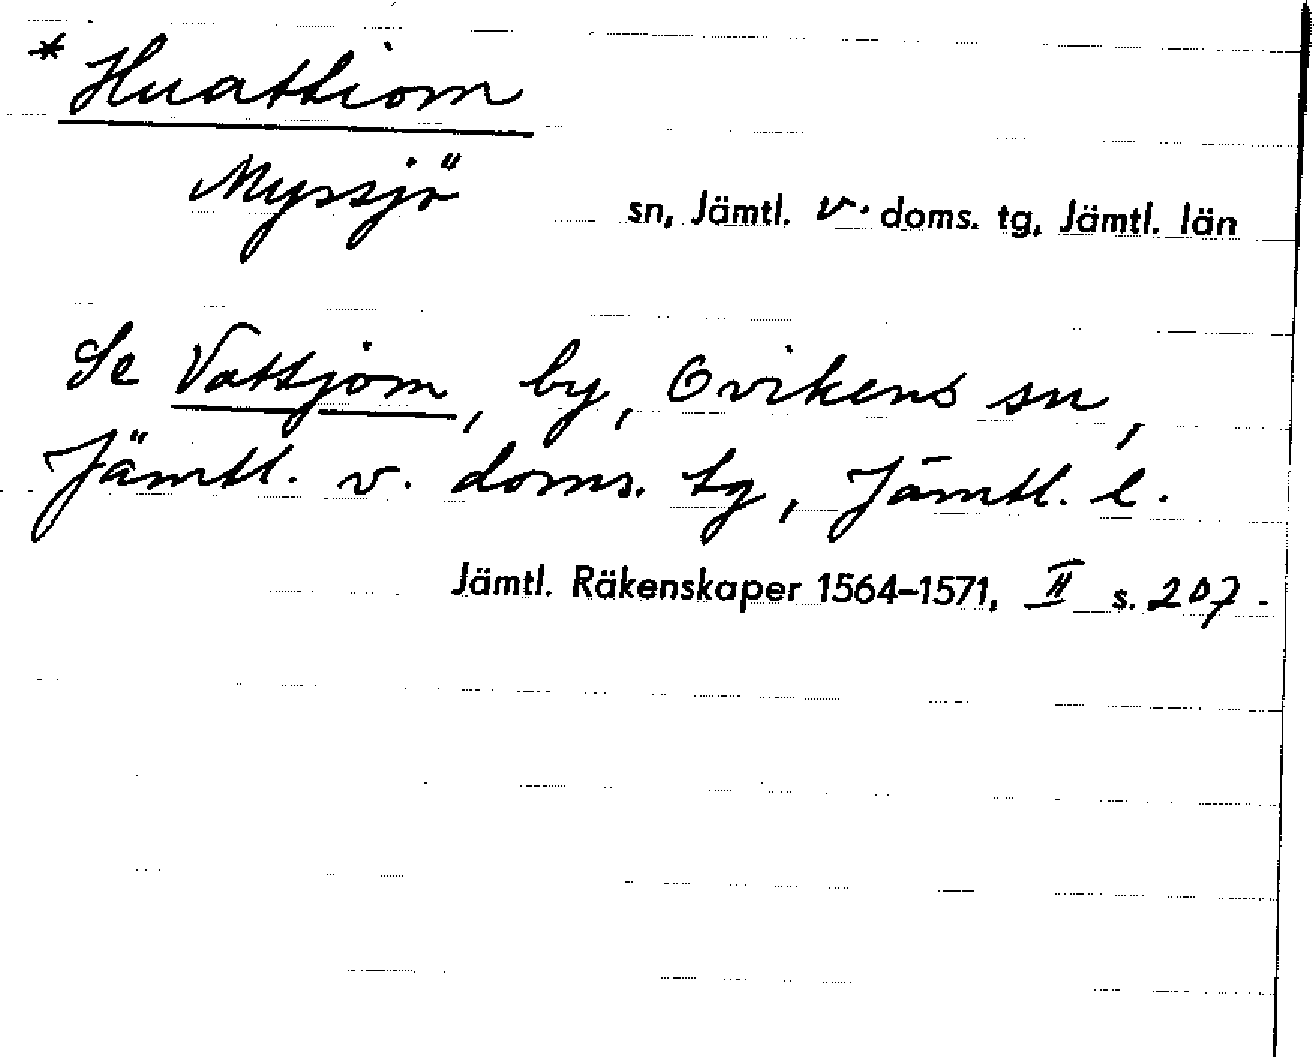 * Huattiom
Myssjö sn, Jämtl. v. doms. tg, Jämtl. län
Se Vattjom, by, Ovikens sn,
Jämtl. v. doms. tg, Jämtl. l.
Jämtl. Räkenskaper 1564–1571, II s. 207.